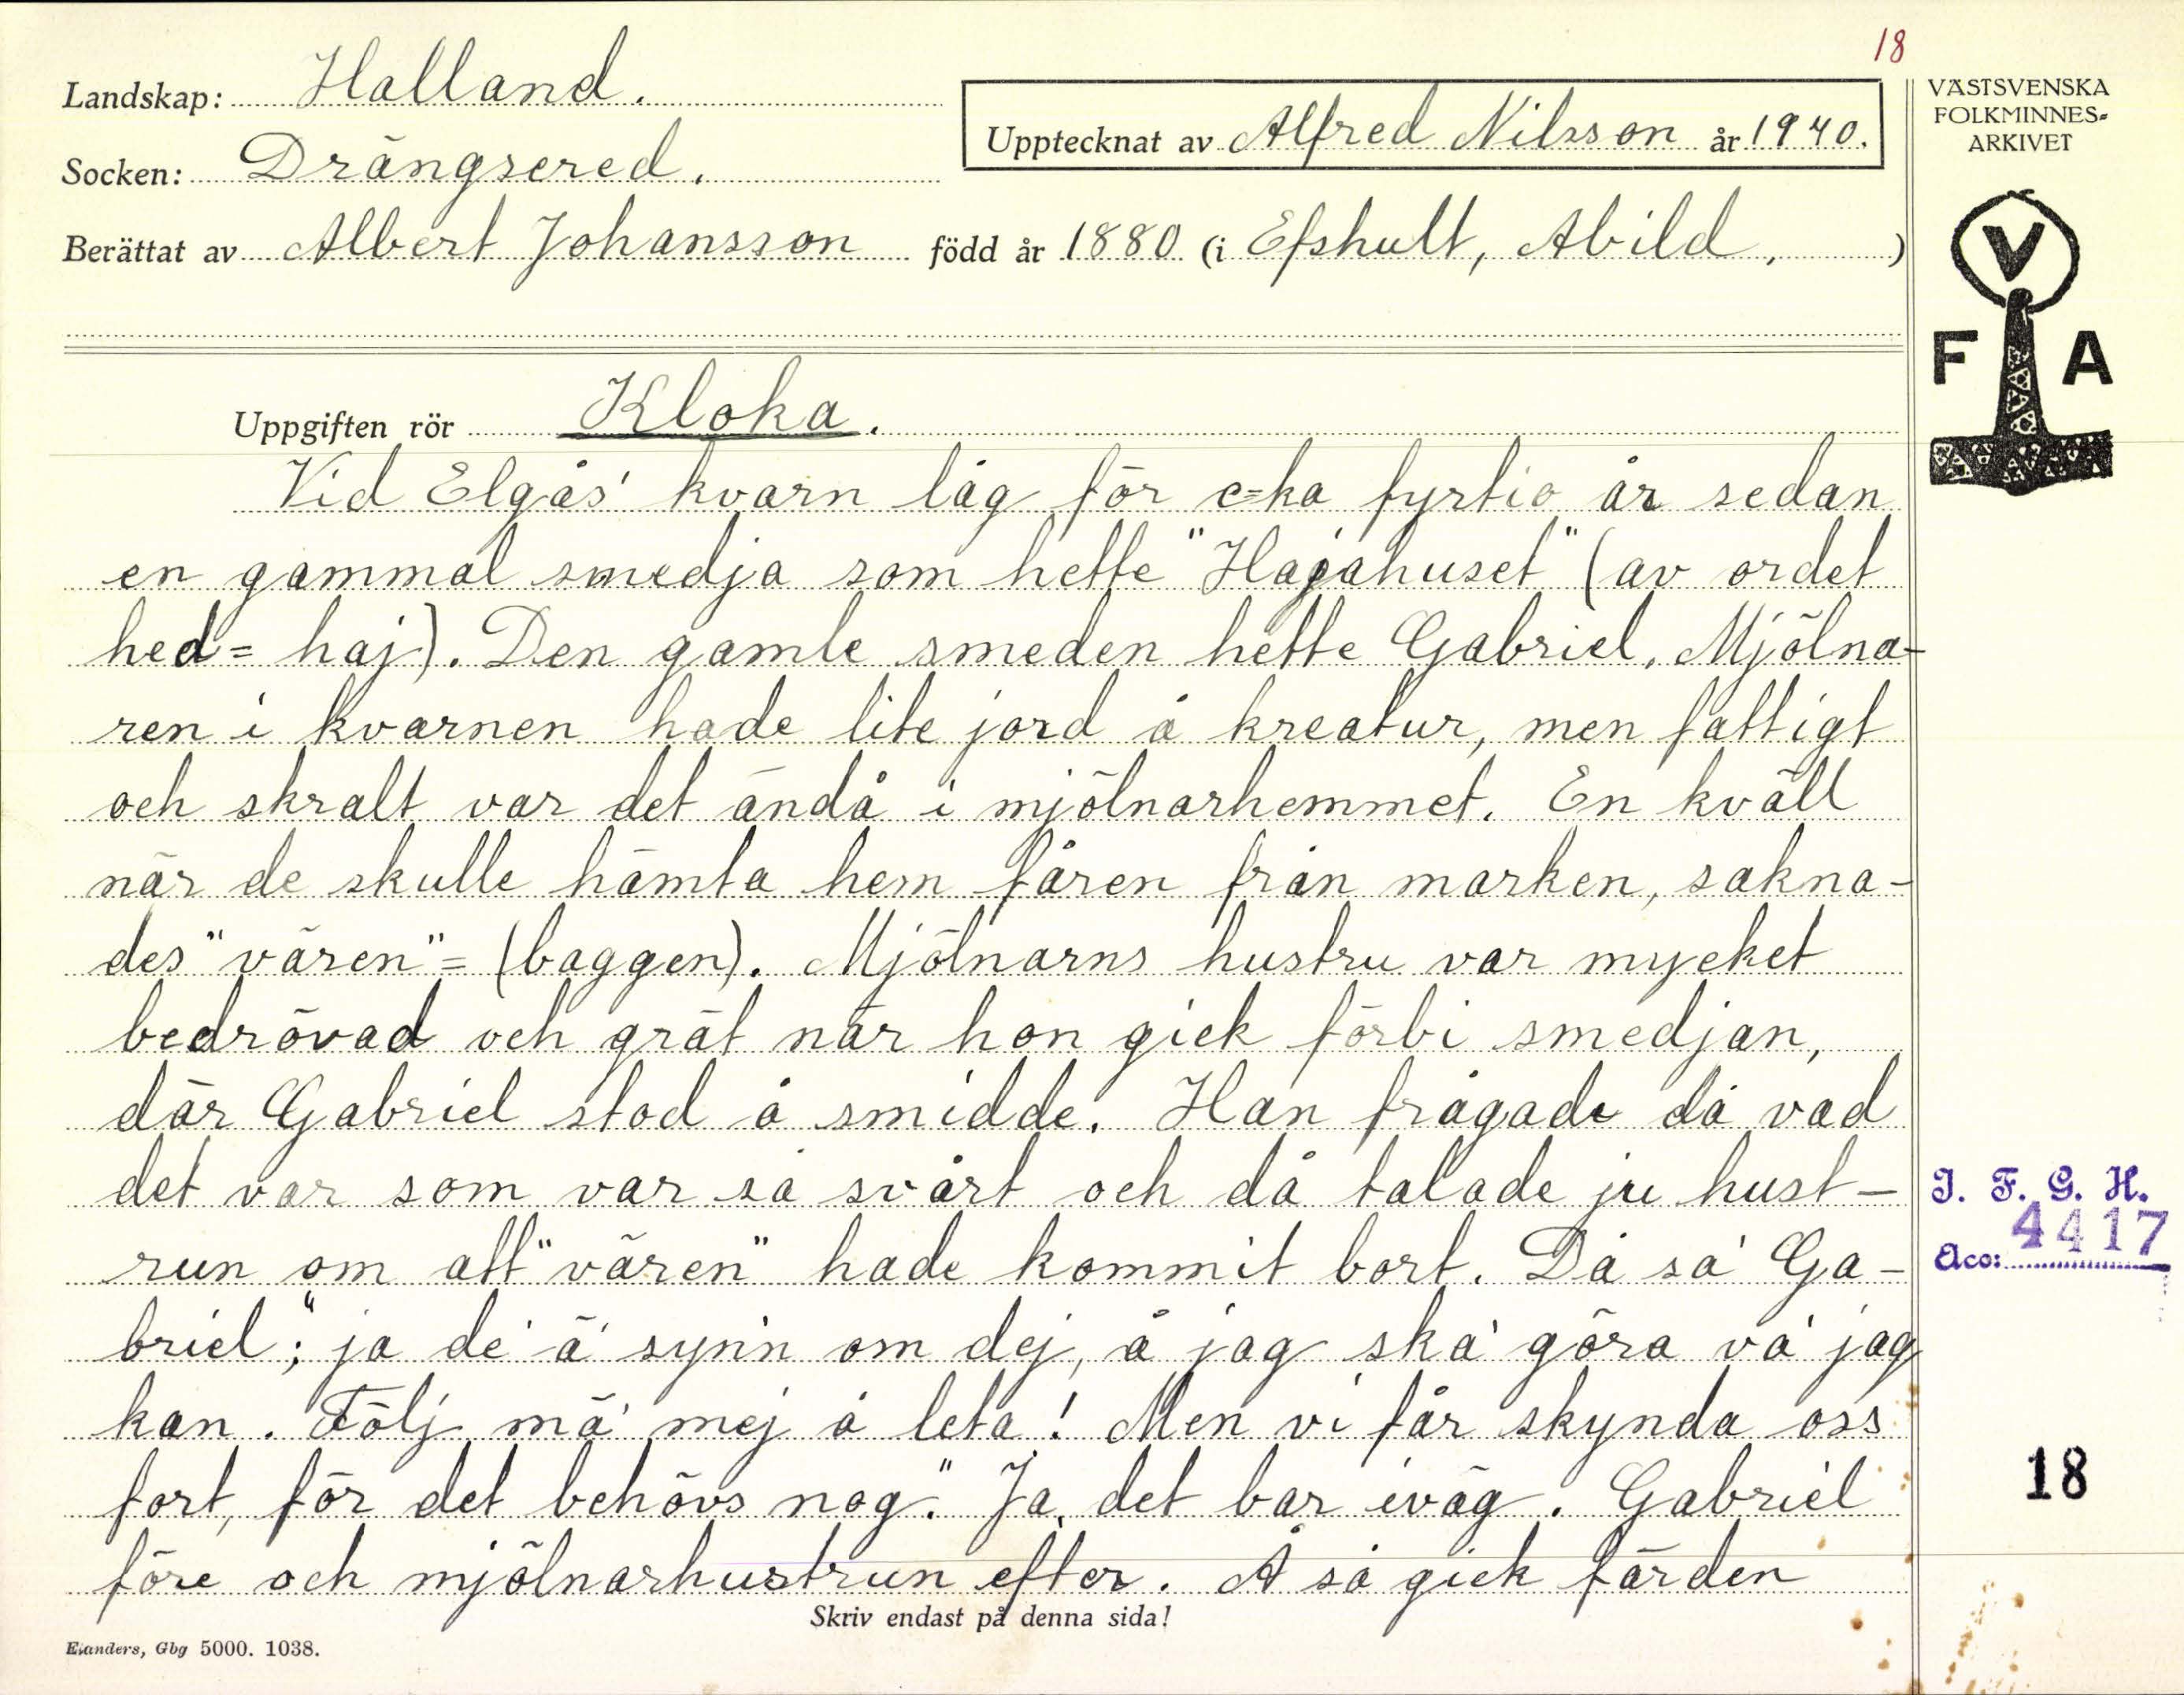 18
Landskap: Halland.
Upptecknat av Alfred Nilsson år 1940.
Socken: Drängsered.
Berättat av Albert Johansson född år 1880 (i Efshult, Abild, )
VÄSTSVENSKA
FOLKMINNES-
ARKIVET
V
F A
Uppgiften rör Kloka.
Vid Elgås' kvarn låg för c=ka fyrtio år sedan
en gammal smedja som hette "Hajahuset" (av ordet
hed = haj). Den gamle smeden hette Gabriel. Mjölna-
ren i kvarnen hade lite jord å kreatur, men fattigt
och skralt var det ändå i mjölnarhemmet. En kväll
när de skulle hämta hem fåren från marken, sakna-
des "vären" = (baggen). Mjölnarns hustru var mycket
bedrövad och grät när hon gick förbi smedjan,
där Gabriel stod å smidde. Han frågade då vad
det var som var så svårt och då talade ju hust-
run om att "vären" hade kommit bort. Då sa' Ga-
briel; "ja de' ä' synn om dej, å jag ska' göra va' jag
kan. Följ mä' mej å leta! Men vi får skynda oss
fort, för det behövs nog." Ja, det bar iväg. Gabriel
före och mjölnarhustrun efter. Å så gick färden
I. F. G. H.
4417
Acc:
18
Skriv endast på denna sida!
Elanders, Gbg 5000. 1038.